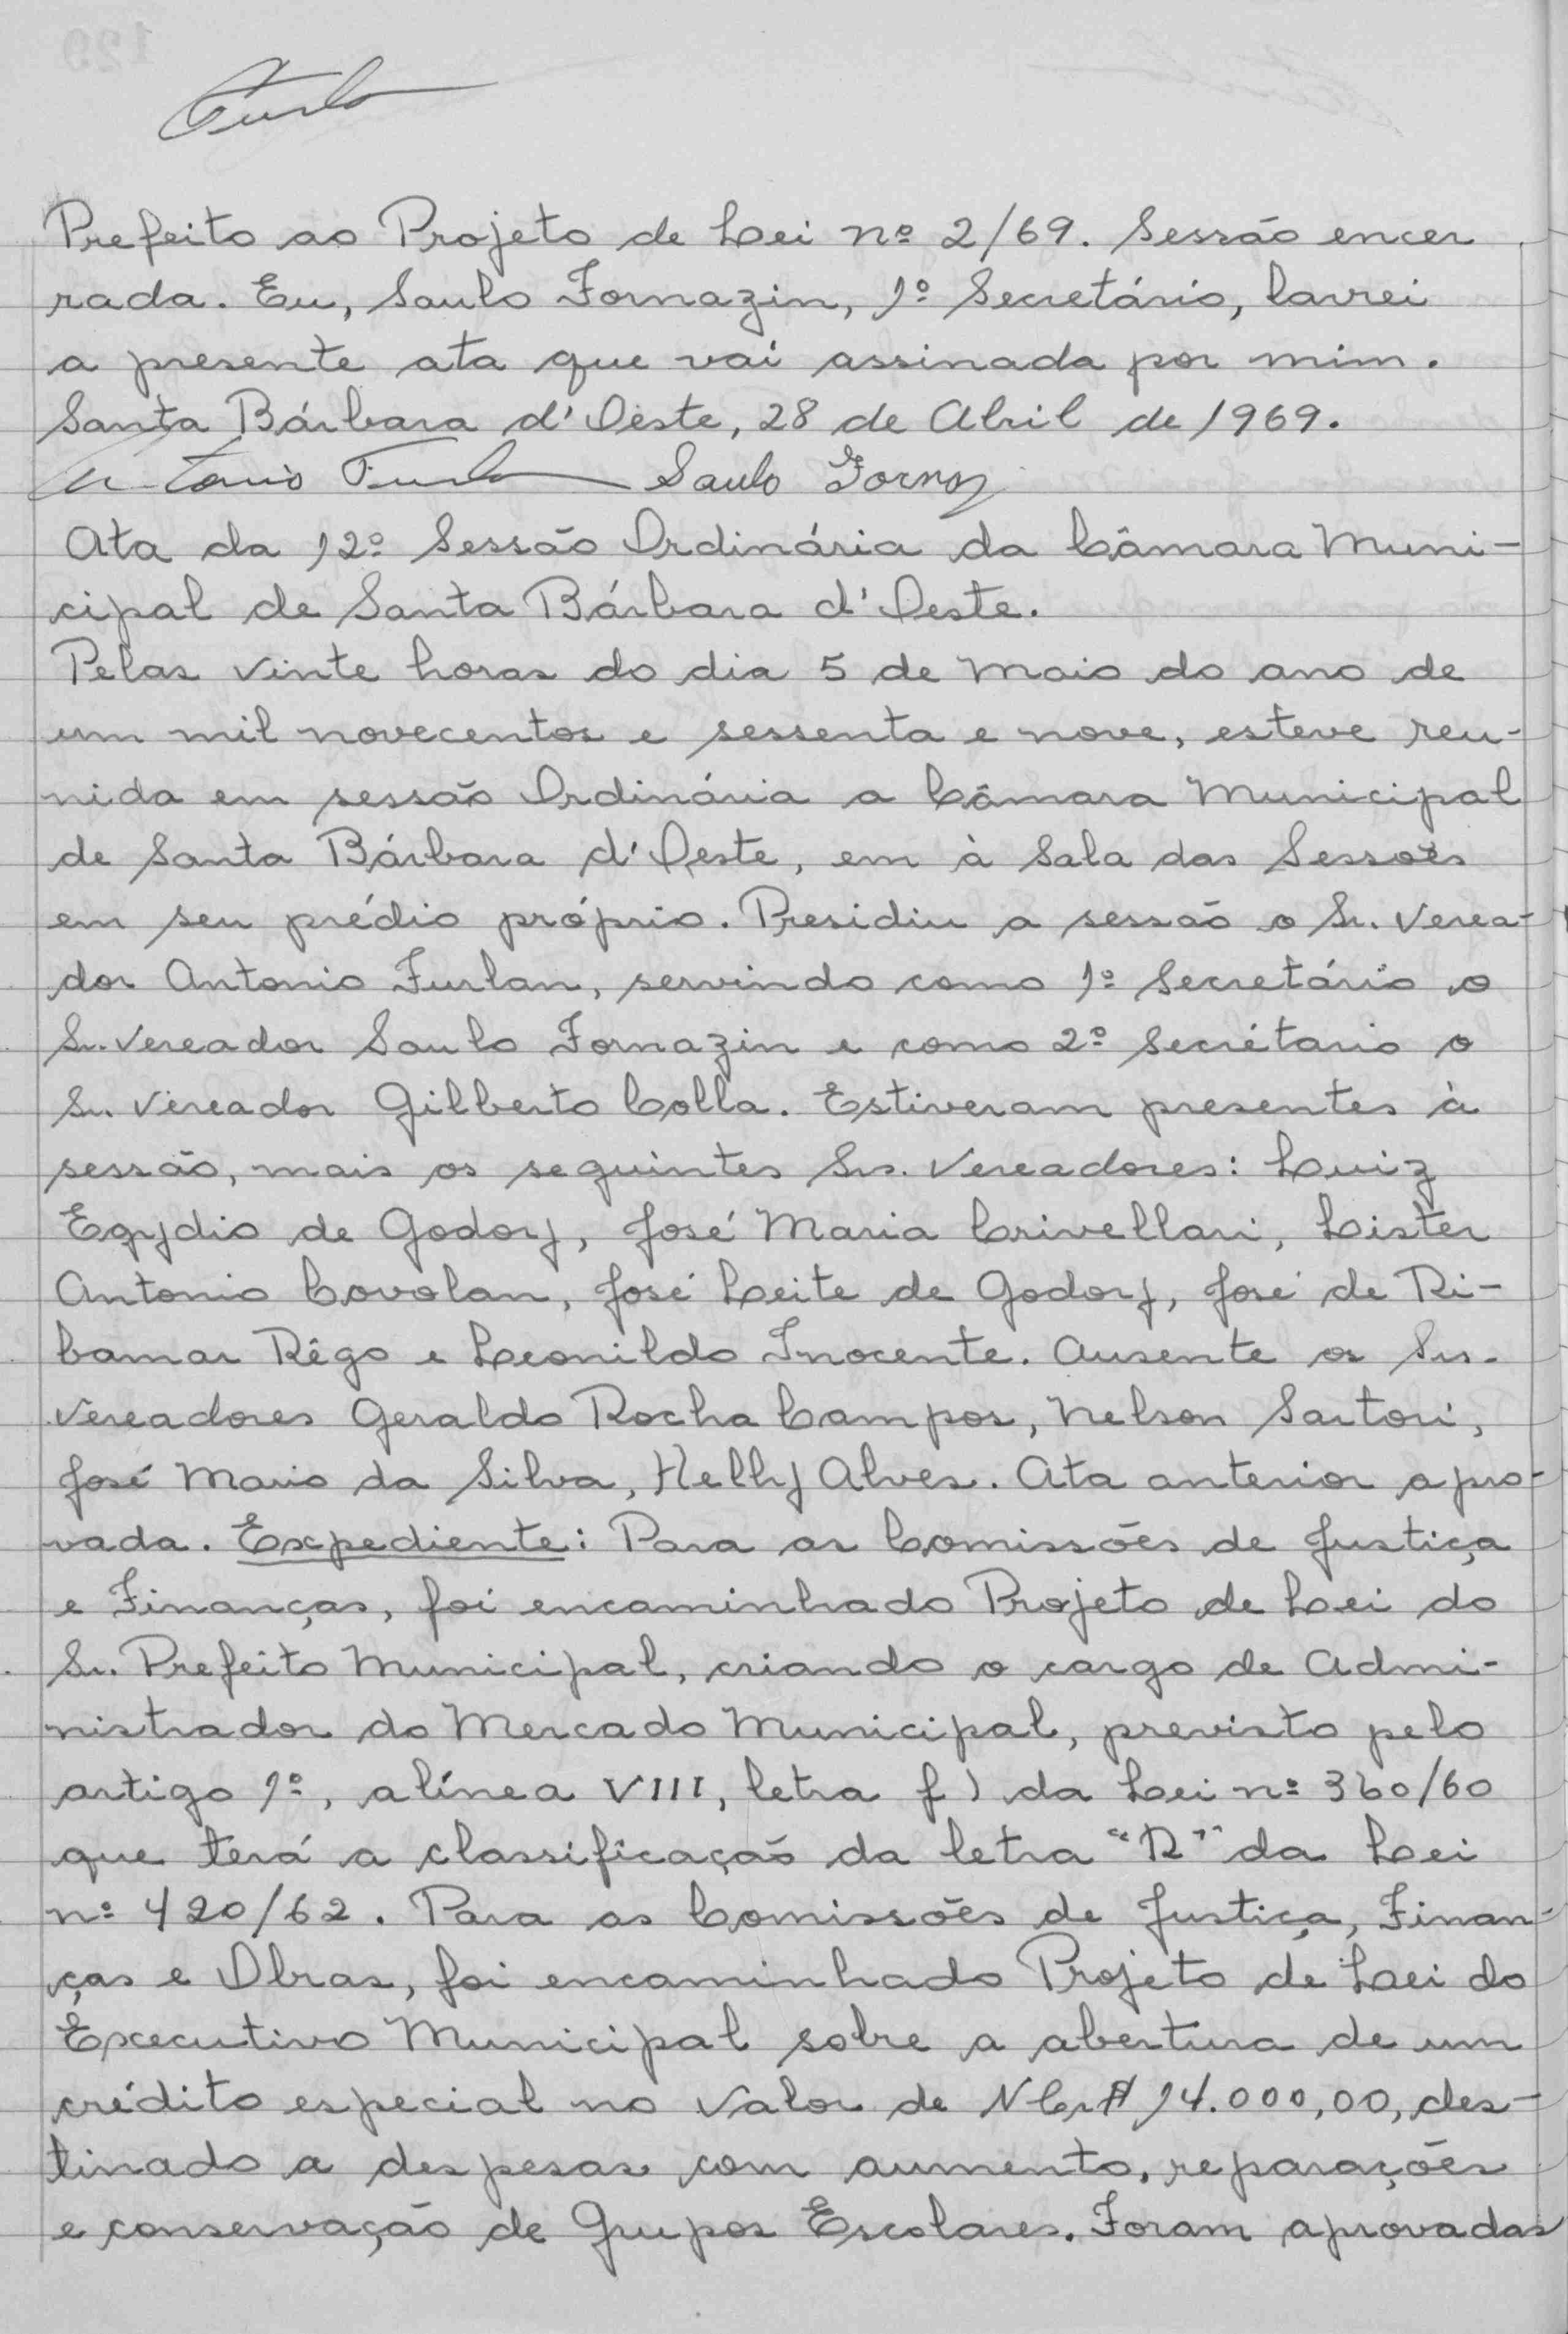 Furlan
Prefeito ao Projeto de Lei nº 2/69. Sessão encer
rada. Eu, Saulo Fornazin, 1º Secretário, lavrei
a presente ata que vai assinada por mim.
Santa Bárbara d'Oeste, 28 de Abril de 1969.
Antonio Furlan Saulo Fornaz
Ata da 12º Sessão Ordinária da Câmara Muni-
cipal de Santa Bárbara d'Oeste.
Pelas vinte horas do dia 5 de Maio do ano de
um mil novecentos e sessenta e nove, esteve reu-
nida em sessão Ordinária a Câmara Municipal
de Santa Bárbara d'Oeste, em à Sala das Sessões
em seu prédio próprio. Presidiu a sessão o Sr. Verea-
dor Antonio Furlan, servindo como 1º Secretário o
Sr. Vereador Saulo Fornazin e como 2º Secrétario o
Sr. Vereador Gilberto Colla. Estiveram presentes à
sessão, mais os seguintes Srs. Vereadores: Luiz
Egydio de Godoy, José Maria Crivellari, Lister
Antonio Covolan, José Leite de Godoy, José de Ri-
bamar Rêgo e Leonildo Inocente. Ausente os Srs.
Vereadores Geraldo Rocha Campos, Nelson Sartori,
José Mario da Silva, Helly Alves. Ata anterior apro-
vada. Expediente: Para as Comissões de Justiça
e Finanças, foi encaminhado Projeto de Lei do
Sr. Prefeito Municipal, criando o cargo de Admi-
nistrador do Mercado Municipal, previsto pelo
artigo 1º, alínea VIII, letra f) da Lei nº 360/60
que terá a classificação da letra "R" da Lei
nº 420/62. Para as Comissões de Justiça, Finan-
ças e Obras, foi encaminhado Projeto de Lei do
Executivo Municipal sobre a abertura de um
crédito especial no valor de NCr$ 14.000,00, des-
tinado a despesas com aumento, reparações
e conservação de Grupos Escolares. Foram aprovadas